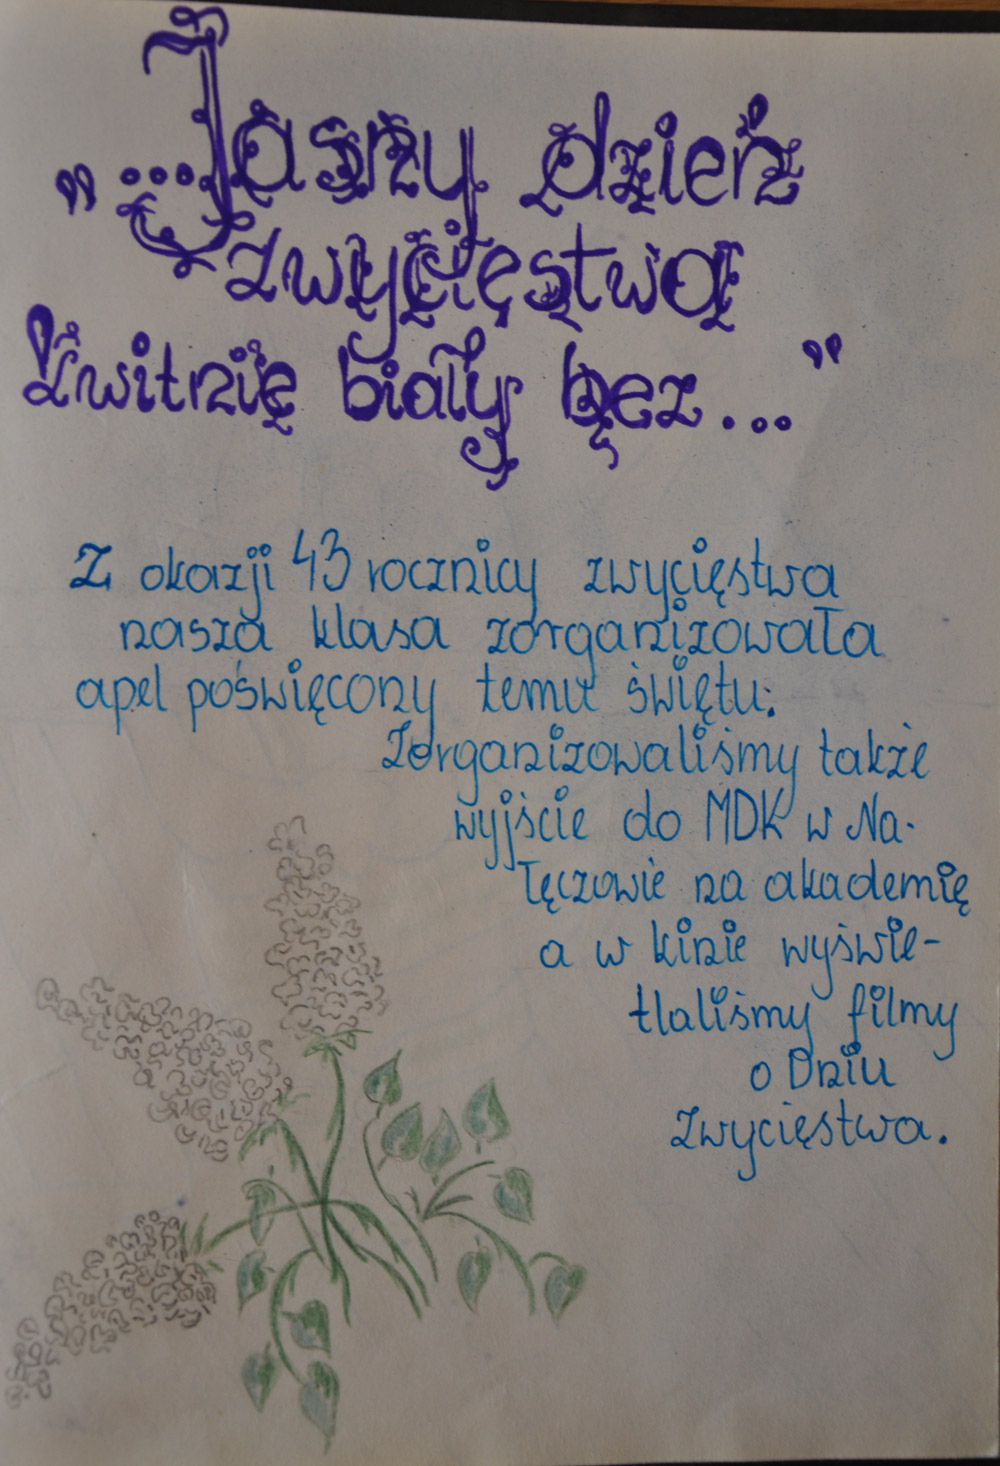 „...Jasny dzień
zwycięstwa
Zwitnie biały bez..."
Z okazji 43 rocznicy zwycięstwa
nasza klasa zorganizowała
apel poświęcony temu świętu.
Zorganizowaliśmy także
wyjście do MDK w Na-
łęczowie na akademię
a w kinie wyświe-
tlaliśmy filmy
o Dniu
Zwycięstwa.